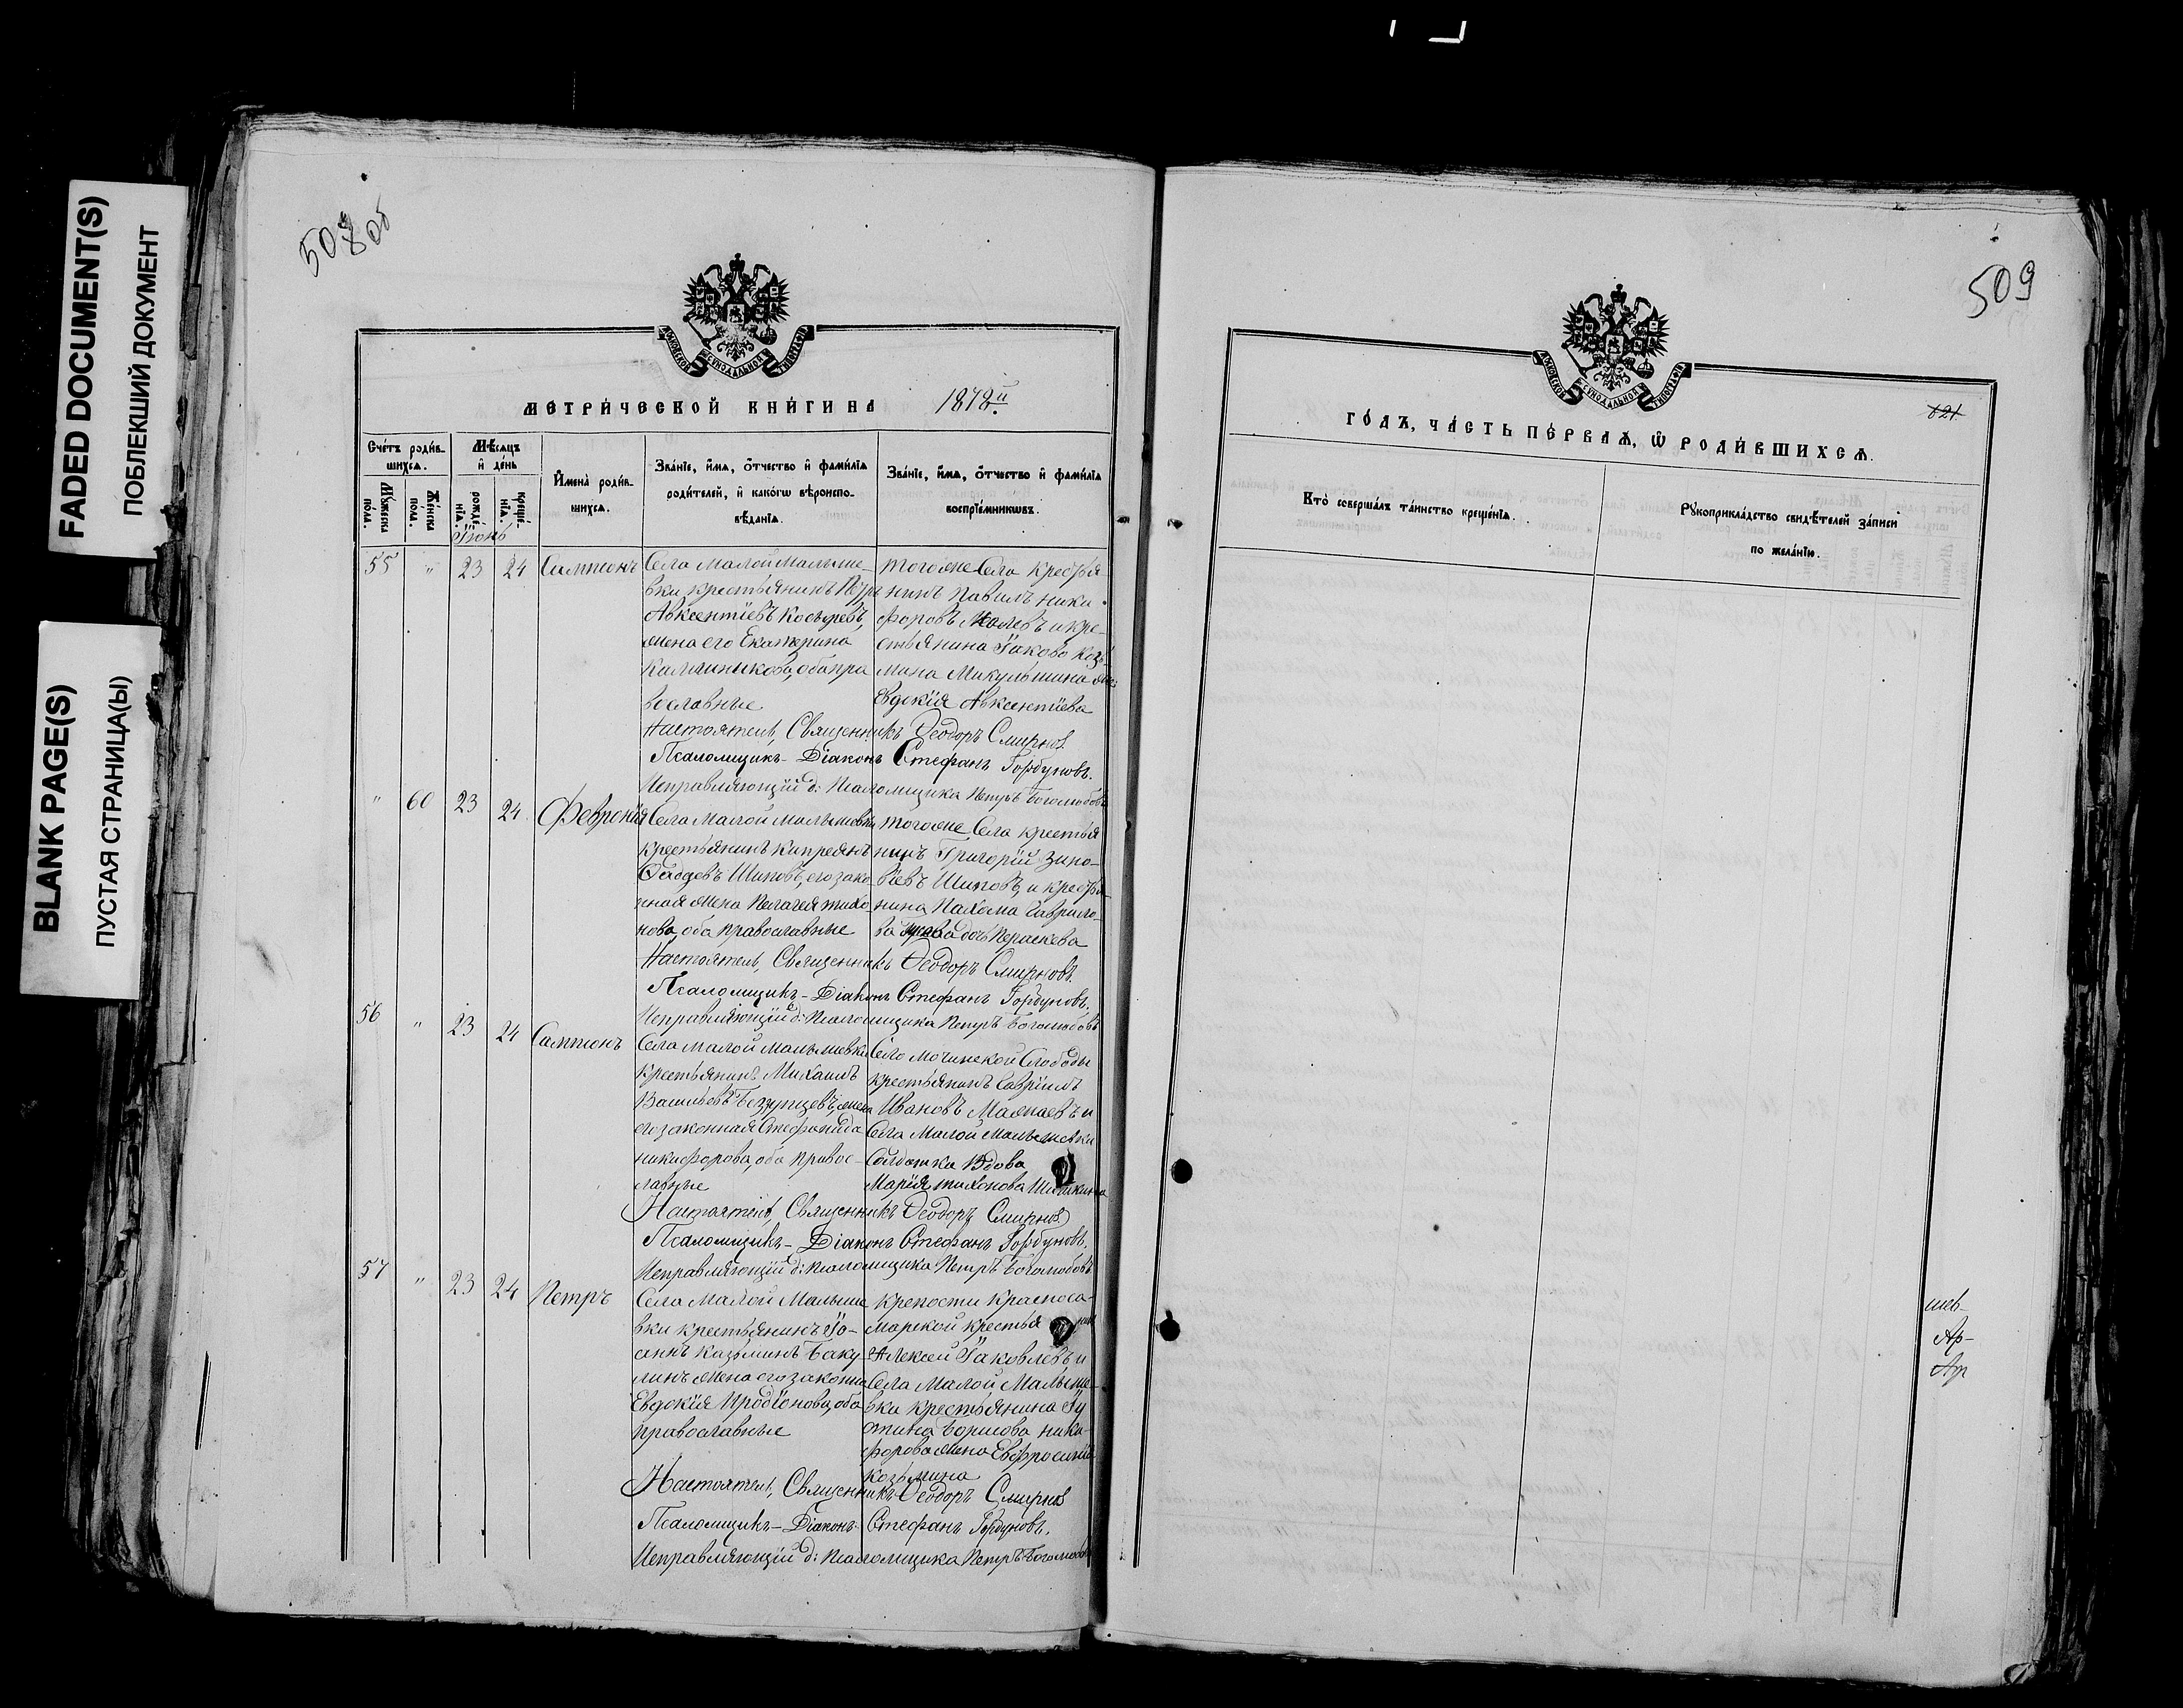 FADED DOCUMENT(S)
ПОБЛЕКШИЙ ДОКУМЕНТ
BLANK PAGE(S)
ПУСТАЯ СТРАНИЦА(Ы)
508 об
МОСКОВСКОЙ СѴНОДАЛЬНОЙ ТИПОГРАФІИ
МЕТРИ́ЧЕСКОЙ КНИ́ГИ НА 1878й
Сче́тъ роди́в-
шихсѧ.
Мꙋ́жеска
по́ла.
Же́нска
по́ла.
Мѣ́сѧцъ
и҆ де́нь
рожде́-
нїѧ.
креще́-
нїѧ.
Іюнь
И҆мена̀ роди́в-
шихсѧ.
Зва́нїе, и҆́мѧ, ѻ҆́тчество и҆ фами́лїѧ
роди́телей, и҆ како́гѡ вѣроиспо-
вѣ́данїѧ.
Зва́нїе, и҆́мѧ, ѻ҆́тчество и҆ фами́лїѧ
воспрїе́мникѡвъ.
55 " 23 24 Сампсонъ
Села Малой Малыше
вки, крестьянинъ Петръ
Авксентіевъ Косыревъ,
жена его Екатерина
Калинникова, оба пра
вославные
тогоже Села крестья
нинъ Павилъ Ники
форовъ и кре-
стьянина Іакова Козь
мина Микульшина
Евдокія Авксентіева
Настоятель, Священникъ Ѳеодоръ Смирновъ
Псаломщикъ-Діаконъ Стефанъ Горбуновъ.
Исправляющій д: Псаломщика Петръ Боголюбовъ
" 60 23 24 Февронія
Села Малой Малышевки
крестьянинъ Кипреянъ
Шиповъ, его зако
нная жена Пелагея Тихо
нова, оба православные
тогоже Села крестья
нинъ Григорій Зино-
віевъ Шиповъ, и крестья
нина Пахома Гаврило-
ва дочь Параскева
Настоятель, Священникъ Ѳеодоръ Смирновъ.
Псаломщикъ-Діаконъ Стефанъ Горбуновъ.
Исправляющій д: Псаломщика Петръ Боголюбовъ
56 " 23 24 Сампсонъ
Села Малой Малышевки
крестьянинъ Михаилъ
Васильевъ жена
его законная Стефанида
Никифорова, оба правос-
лавные
Село Мочинской Слободы
крестьянинъ Гавріилъ
Ивановъ и
Села Малой Малышевки
Солдатка Вдова
Марія Тихонова
Настоятель, Священникъ Ѳеодоръ Смирновъ
Псаломщикъ-Діаконъ Стефанъ Горбуновъ.
Исправляющій д: псаломщика Петръ Боголюбовъ
57 " 23 24 Петръ
Села Малой Малыше
вки крестьянинъ Іо-
аннъ Козьминъ Баку
линъ жена его законна
Евдокія Иродіонова, оба
православные
крепости Красноса-
марской крестья нинъ
Алексей Іаковлевъ, и
Села Малой Малыше-
вки крестьянина Іу
стина Борисова Ники-
форова жена Евфросинія
Козьмина
Настоятель, Священникъ Ѳеодоръ Смирновъ
Псаломщикъ-Діаконъ Стефанъ Горбуновъ.
Исправляющій д: псаломщика Петръ Боголюбовъ
509
621
МОСКОВСКОЙ СѴНОДАЛЬНОЙ ТИПОГРАФІИ
ГО́ДЪ, ЧА́СТЬ ПЕ́РВАѦ, Ѡ҆ РОДИ́ВШИХСѦ.
Кто̀ соверша́лъ та́инство креще́нїѧ.
Рꙋкоприкла́дство свидѣ́телей за́писи
по жела́нїю.
шев-
Ар-
Ар